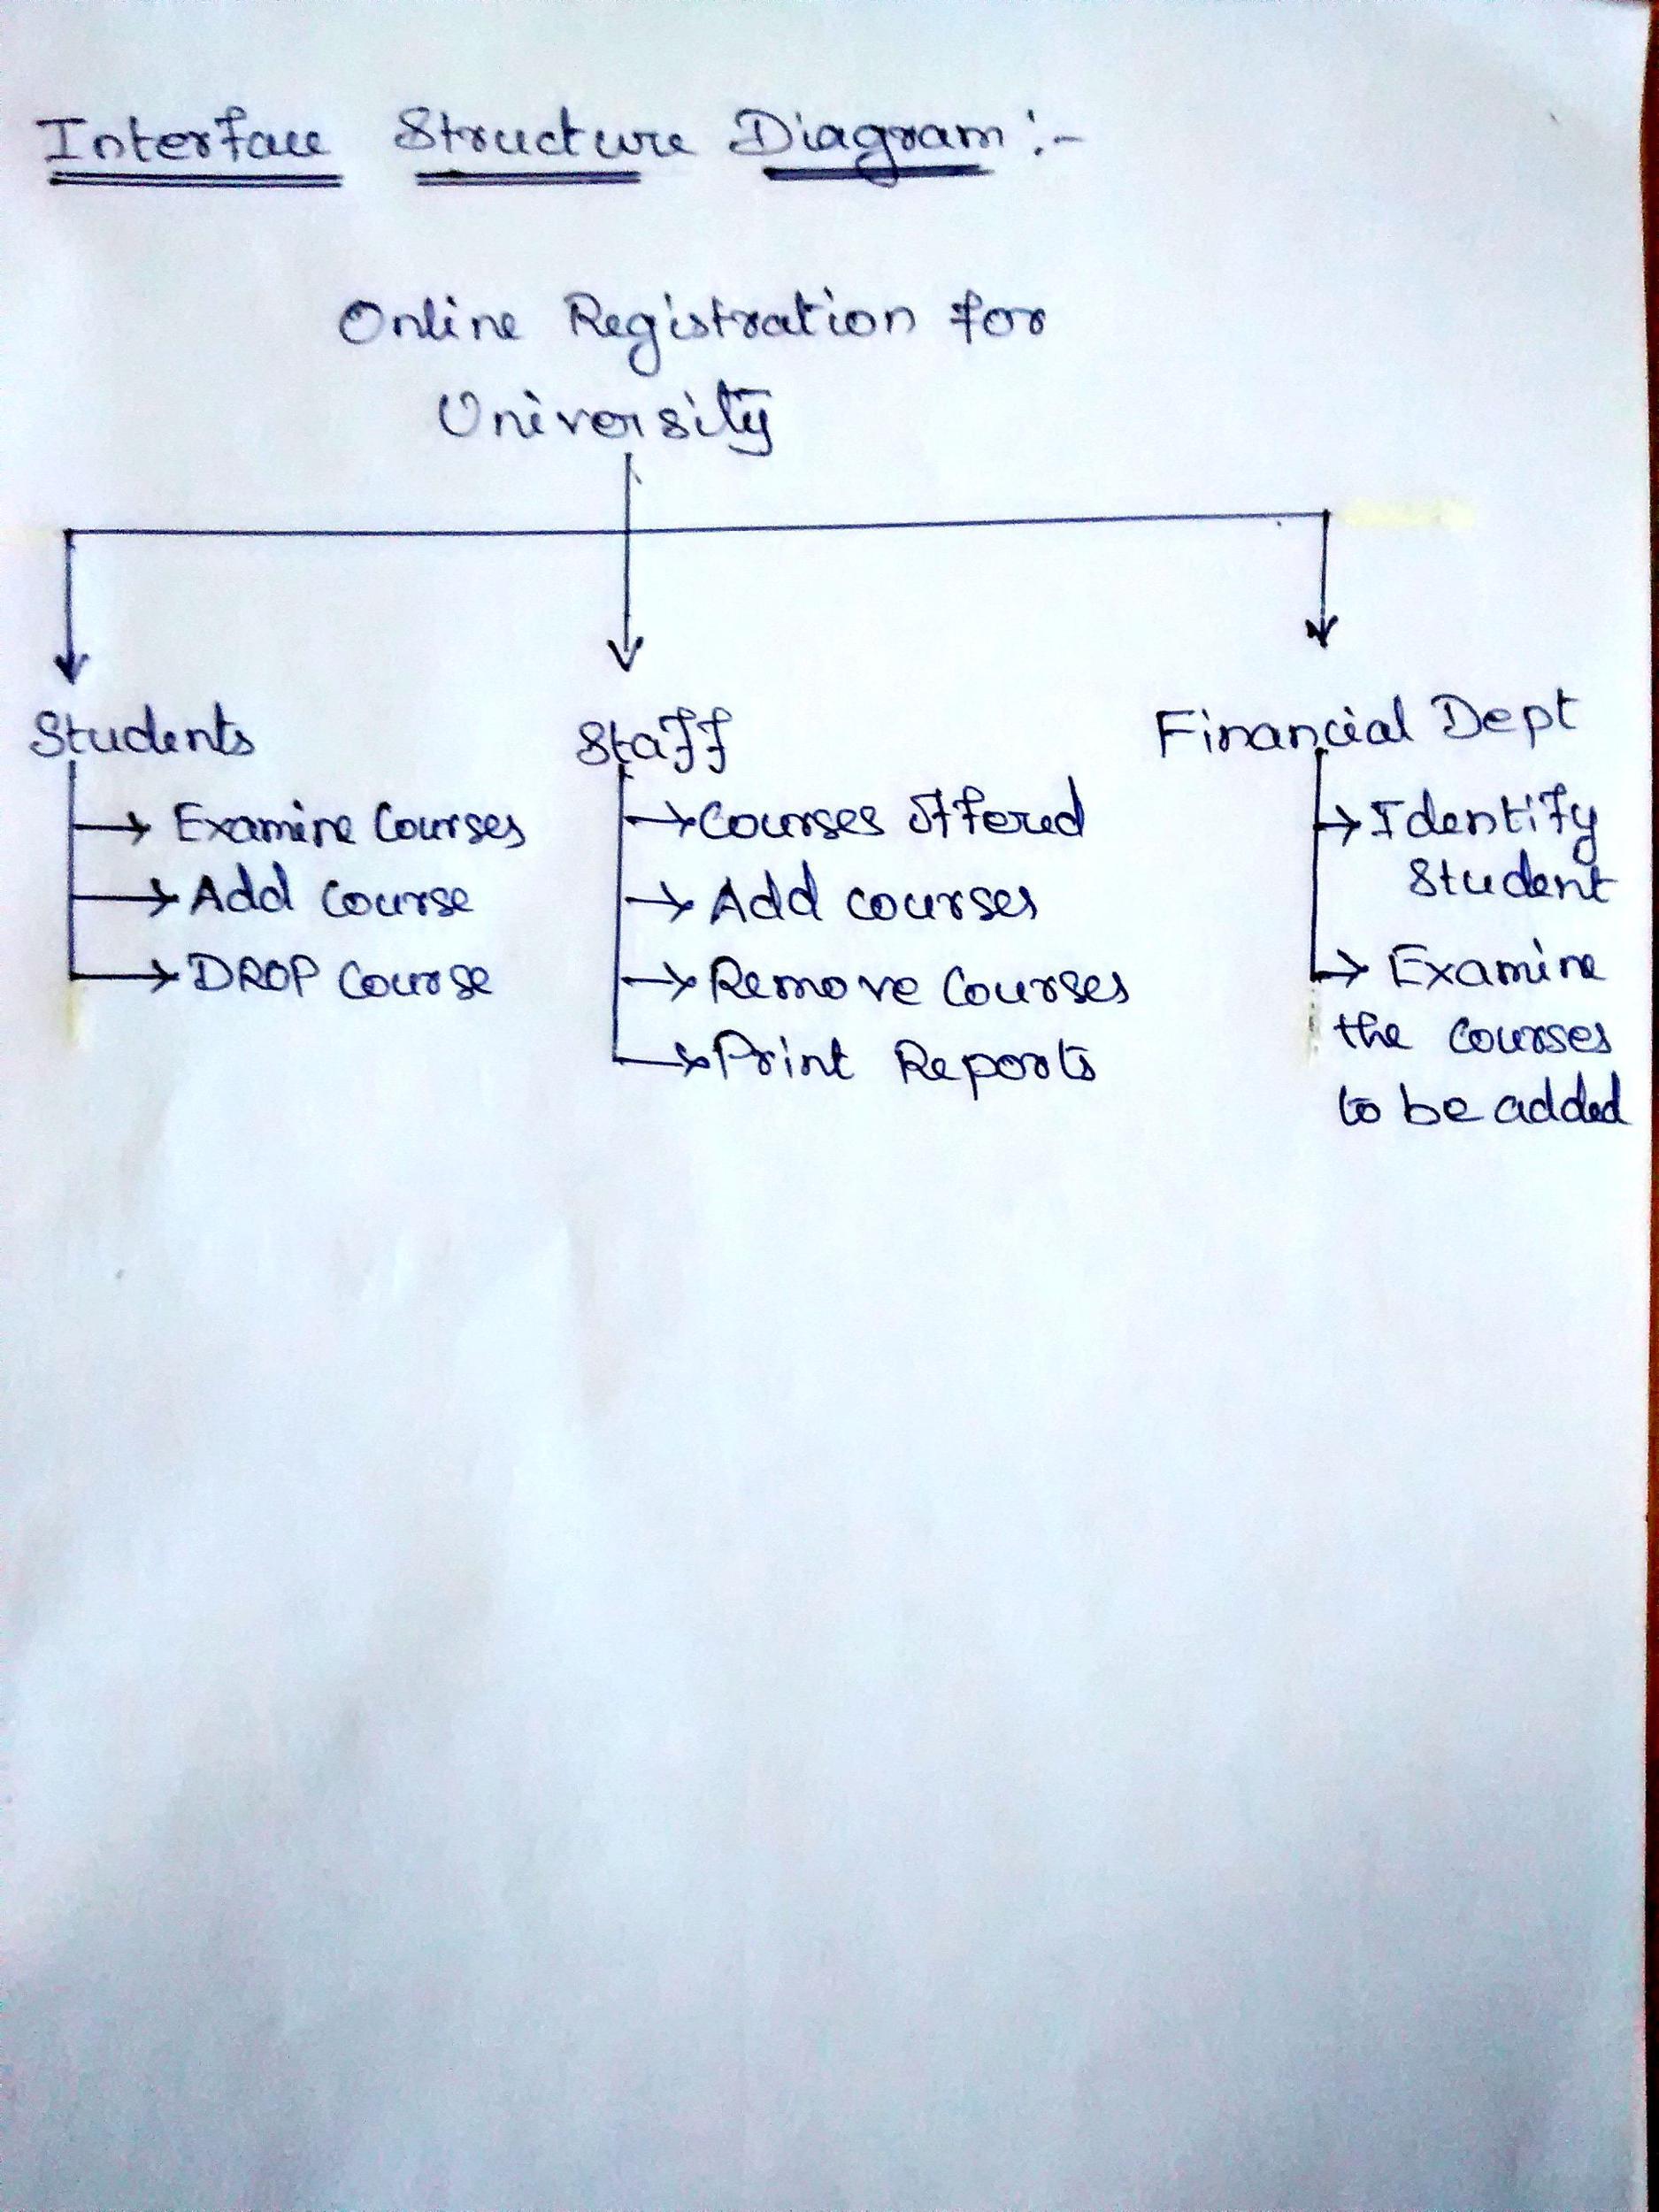 Interface Structure Diagram :-
Online Registration for
University
Students
Examine Courses
Add Course
DROP Course
Staff
Courses offered
Add courses
Remove Courses
Print Reports
Financial Dept
Identify
Student
Examine
the courses
to be added